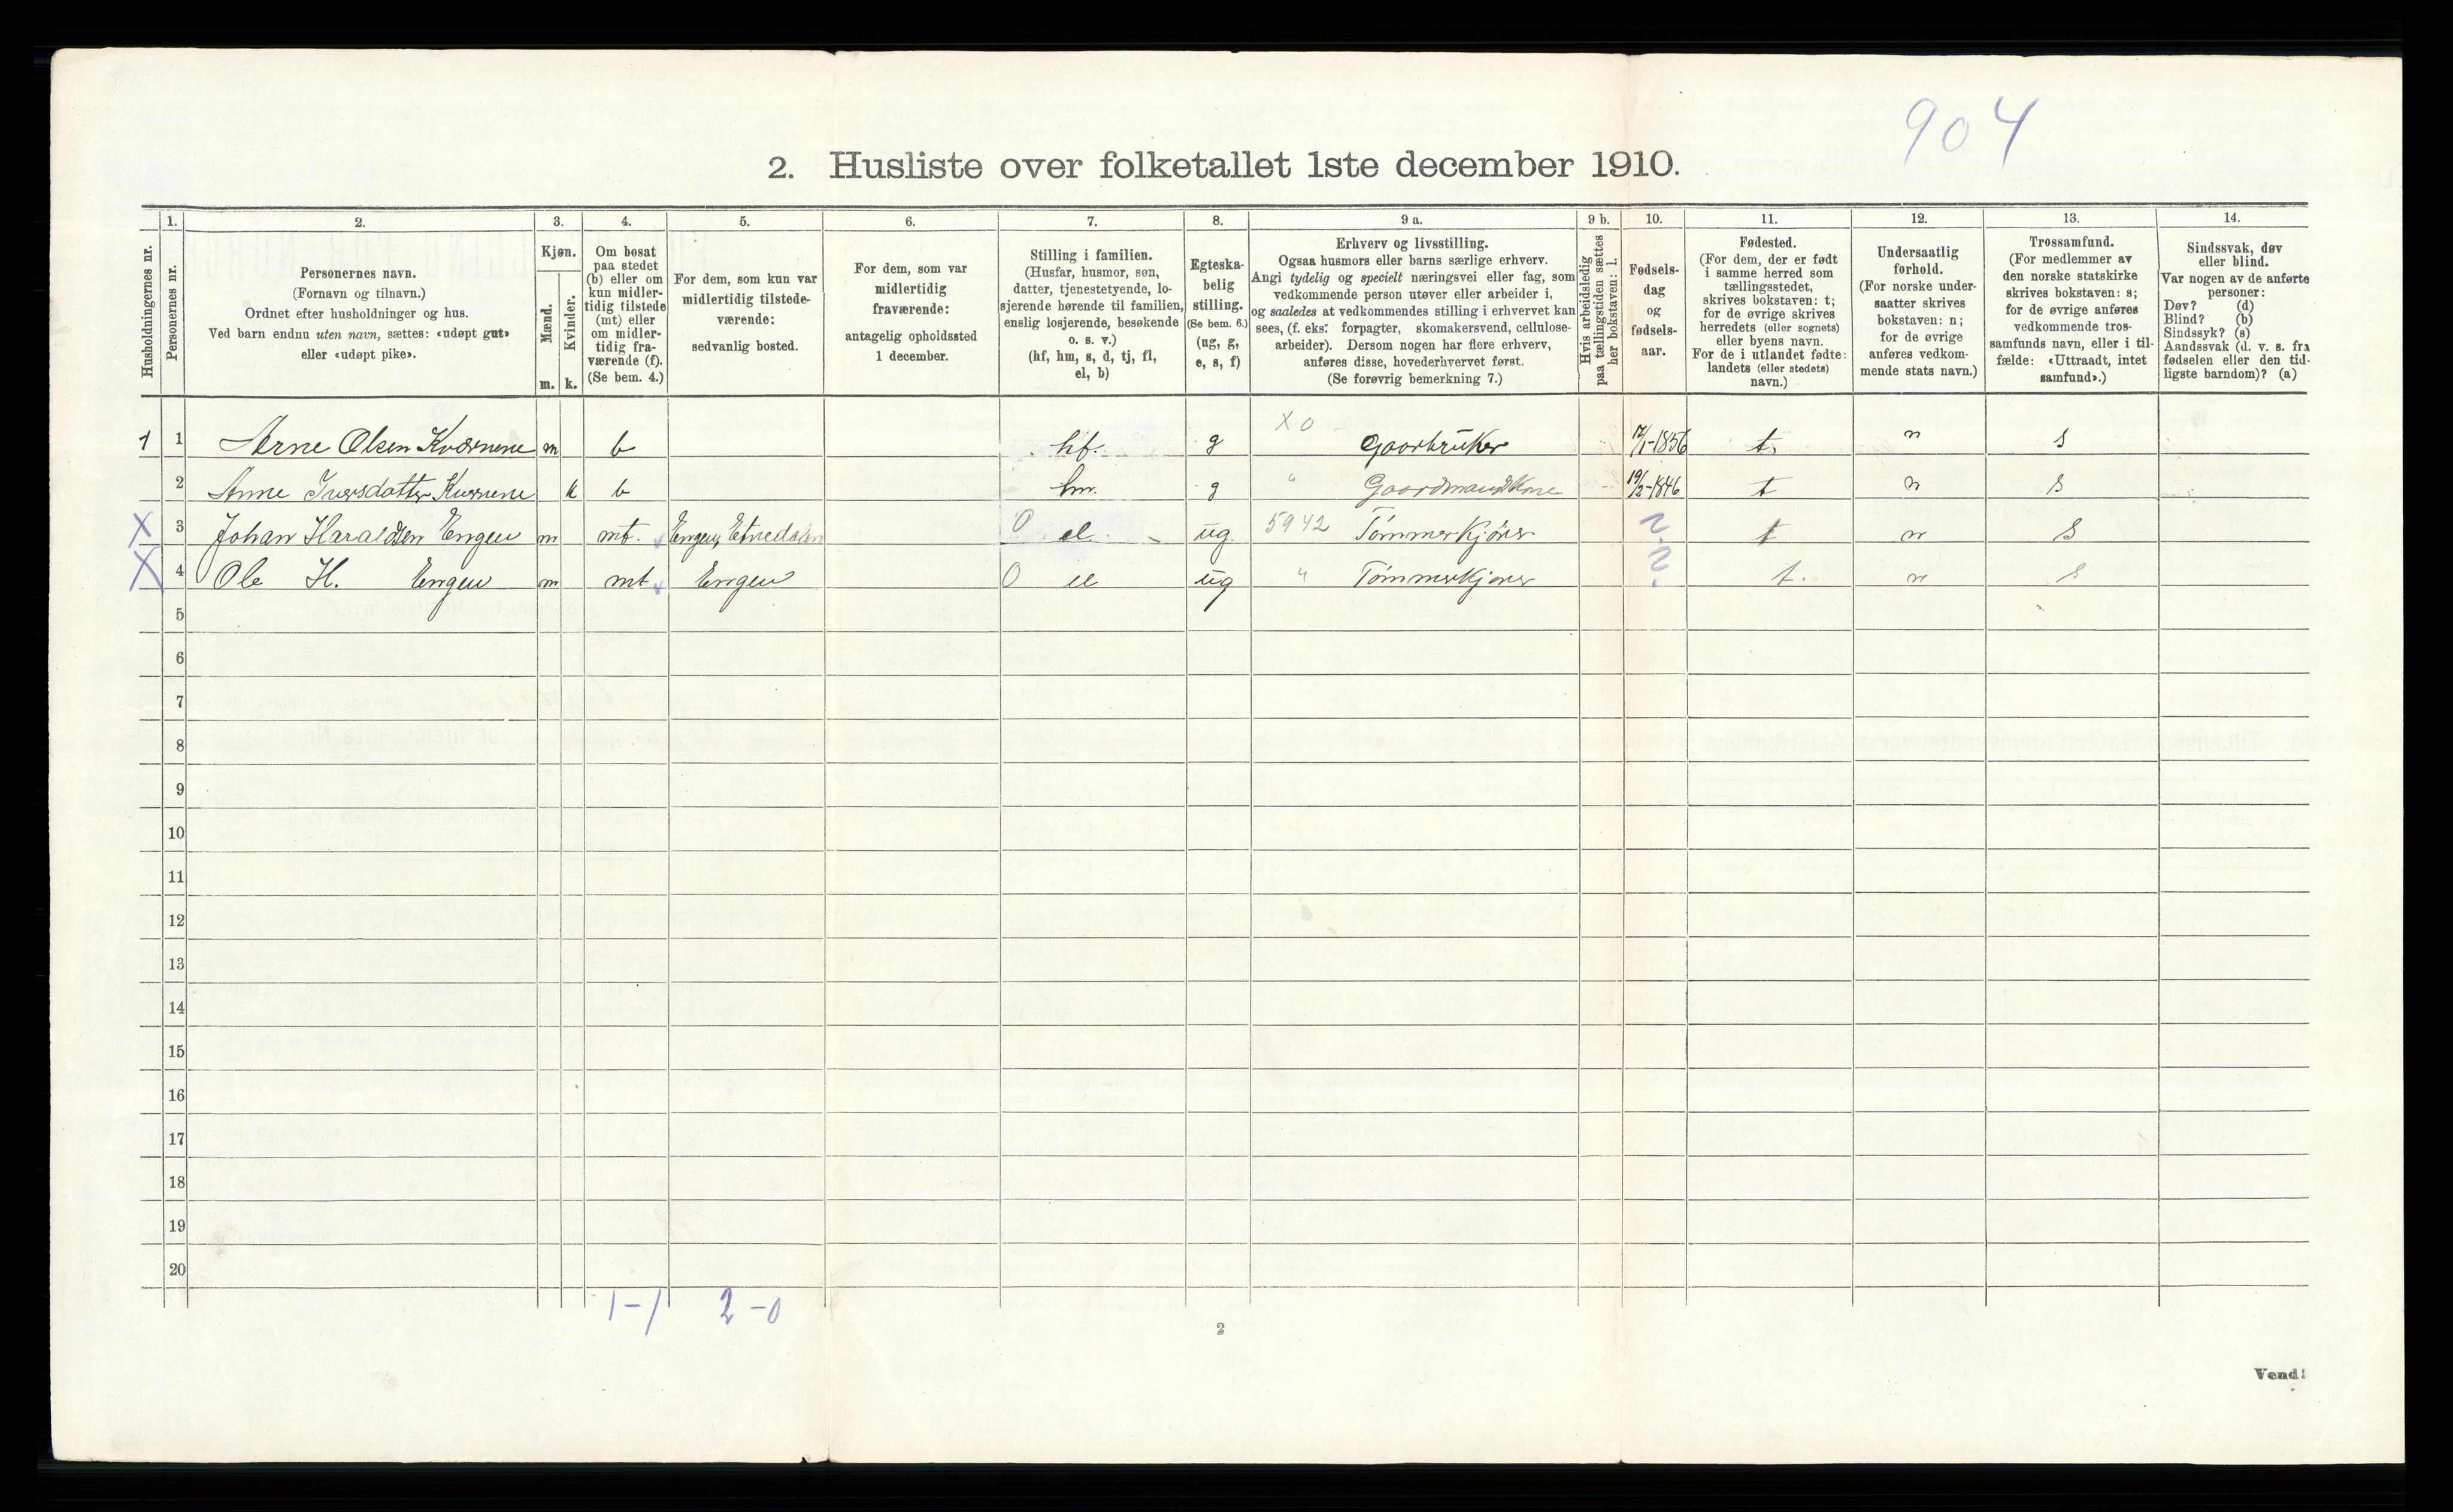 904
2. Husliste over folketallet 1ste december 1910.
Husholdningernes nr.
1. Personernes nr.
2. Personernes navn. (Fornavn og tilnavn.) Ordnet efter husholdninger og hus. Ved barn endnu uten navn, sættes: «udøpt gut» eller «udøpt pike».
3. Kjøn. Mænd. m. Kvinder. k.
4. Om bosat paa stedet (b) eller om kun midlertidig tilstede (mt) eller om midlertidig fraværende (f). (Se bem. 4.)
5. For dem, som kun var midlertidig tilstedeværende: sedvanlig bosted.
6. For dem, som var midlertidig fraværende: antagelig opholdssted 1 december.
7. Stilling i familien. (Husfar, husmor, søn, datter, tjenestetyende, losjerende hørende til familien, enslig losjerende, besøkende o. s. v.) (hf, hm, s, d, tj, fl, el, b)
8. Egteskabelig stilling. (Se bem. 6.) (ug, g, e, s, f)
9 a. Erhverv og livsstilling. Ogsaa husmors eller barns særlige erhverv. Angi tydelig og specielt næringsvei eller fag, som vedkommende person utøver eller arbeider i, og saaledes at vedkommendes stilling i erhvervet kan sees, (f. eks. forpagter, skomakersvend, cellulosearbeider). Dersom nogen har flere erhverv, anføres disse, hovederhvervet først. (Se forøvrig bemerkning 7.)
9 b. Hvis arbeidsledig paa tællingstiden sættes her bokstaven: l.
10. Fødselsdag og fødselsaar.
11. Fødested. (For dem, der er født i samme herred som tællingsstedet, skrives bokstaven: t; for de øvrige skrives herredets (eller sognets) eller byens navn. For de i utlandet fødte: landets (eller stedets) navn.)
12. Undersaatlig forhold. (For norske undersaatter skrives bokstaven: n; for de øvrige anføres vedkommende stats navn.)
13. Trossamfund. (For medlemmer av den norske statskirke skrives bokstaven: s; for de øvrige anføres vedkommende trossamfunds navn, eller i tilfælde: «Uttraadt, intet samfund».)
14. Sindssvak, døv eller blind. Var nogen av de anførte personer: Døv? (d) Blind? (b) Sindssyk? (s) Aandssvak (d. v. s. fra fødselen eller den tidligste barndom)? (a)
1 1 Arne Olsen Kværnene m b hf. g X 0 Gaarbruker 17/1-1856 t. n s
2 Anne Iversdatter Kværnene k b hm. g " Gaardmandkone 19/2-1846 t n s
X 3 Johan Haraldsen Engen m mt. Engen, Etnedalen 0 el ug 5942 Tømmerkjører ? t n s
X 4 Ole H. Engen m mt Engen 0 el ug " Tømmerkjører ? t. n s
5
6
7
8
9
10
11
12
13
14
15
16
17
18
19
20
1-1 2-0
2
Vend!